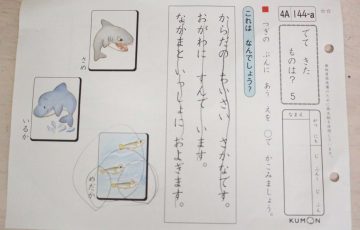 4A 144-a
でて きた
ものは? 5
なまえ
がつ
にち
じ
ふん
KUMON
つぎの ぶんに あう えを ○で かこみましょう。
これは なんでしょう?
からだの ちいさい さかなです。
おがわに すんでいます。
なかまと いっしょに およぎます。
さめ
いるか
めだか